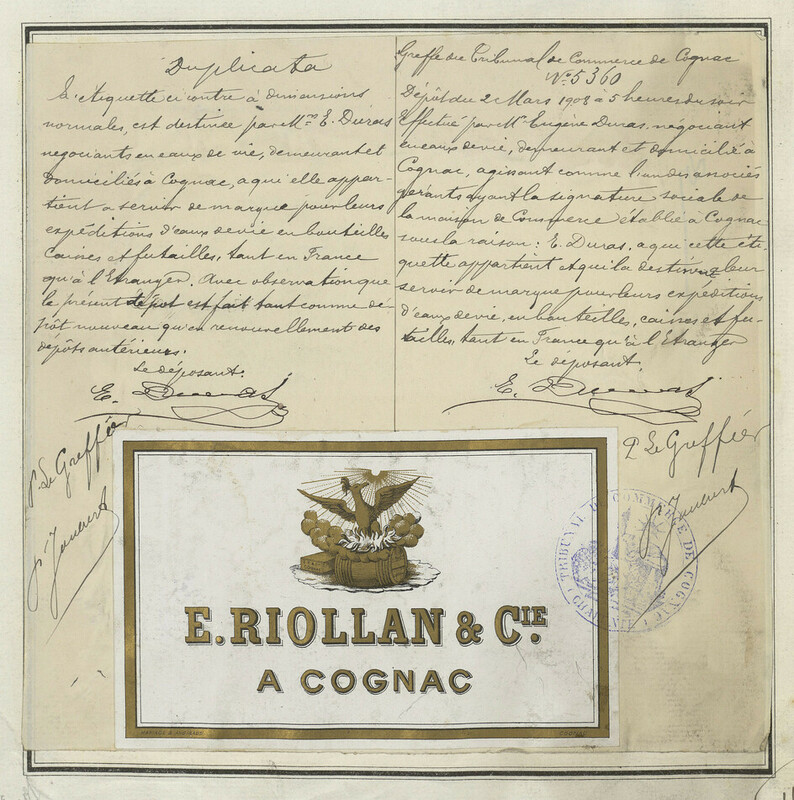 Duplicata
L'Etiquette ci contre à dimensions
normales, est destinée par Mrs E. Duras
négociants en eaux de vie, demeurant et
domiciliés à Cognac, a qui elle appar-
tient a servir de marque pour leurs
expéditions d'eaux de vie en bouteilles
caisses et futailles, tant en France
qu'à l'Etranger. Avec observation que
le présent dépot est fait tant comme dé-
pôt nouveau qu'en renouvellement des
dépôts antérieurs.
Le déposant.
E. Duras
P. Le Greffier
Greffe du Tribunal de Commerce de Cognac
No 5360
Dépôt du 2 Mars 1908 à 5 heures du soir
Effectué par Mr Eugène Duras, négociant
en eaux de vie, demeurant et domicilié à
Cognac, agissant comme l'un des associés
gérants ayant la signature sociale de
la maison de Commerce établie à Cognac
sous la raison : E. Duras, a qui cette éti-
quette appartient et qui la destinent leur
servir de marque pour leurs expéditions
d'eaux de vie, en bouteilles, caisses et fu-
tailles, tant en France qu'à l'Etranger
Le déposant.
E. Duras
P. Le Greffier
TRIBUNAL DE COMMERCE DE COGNAC
(CHARENTE)
E. RIOLLAN & CIE.
A COGNAC
COGNAC